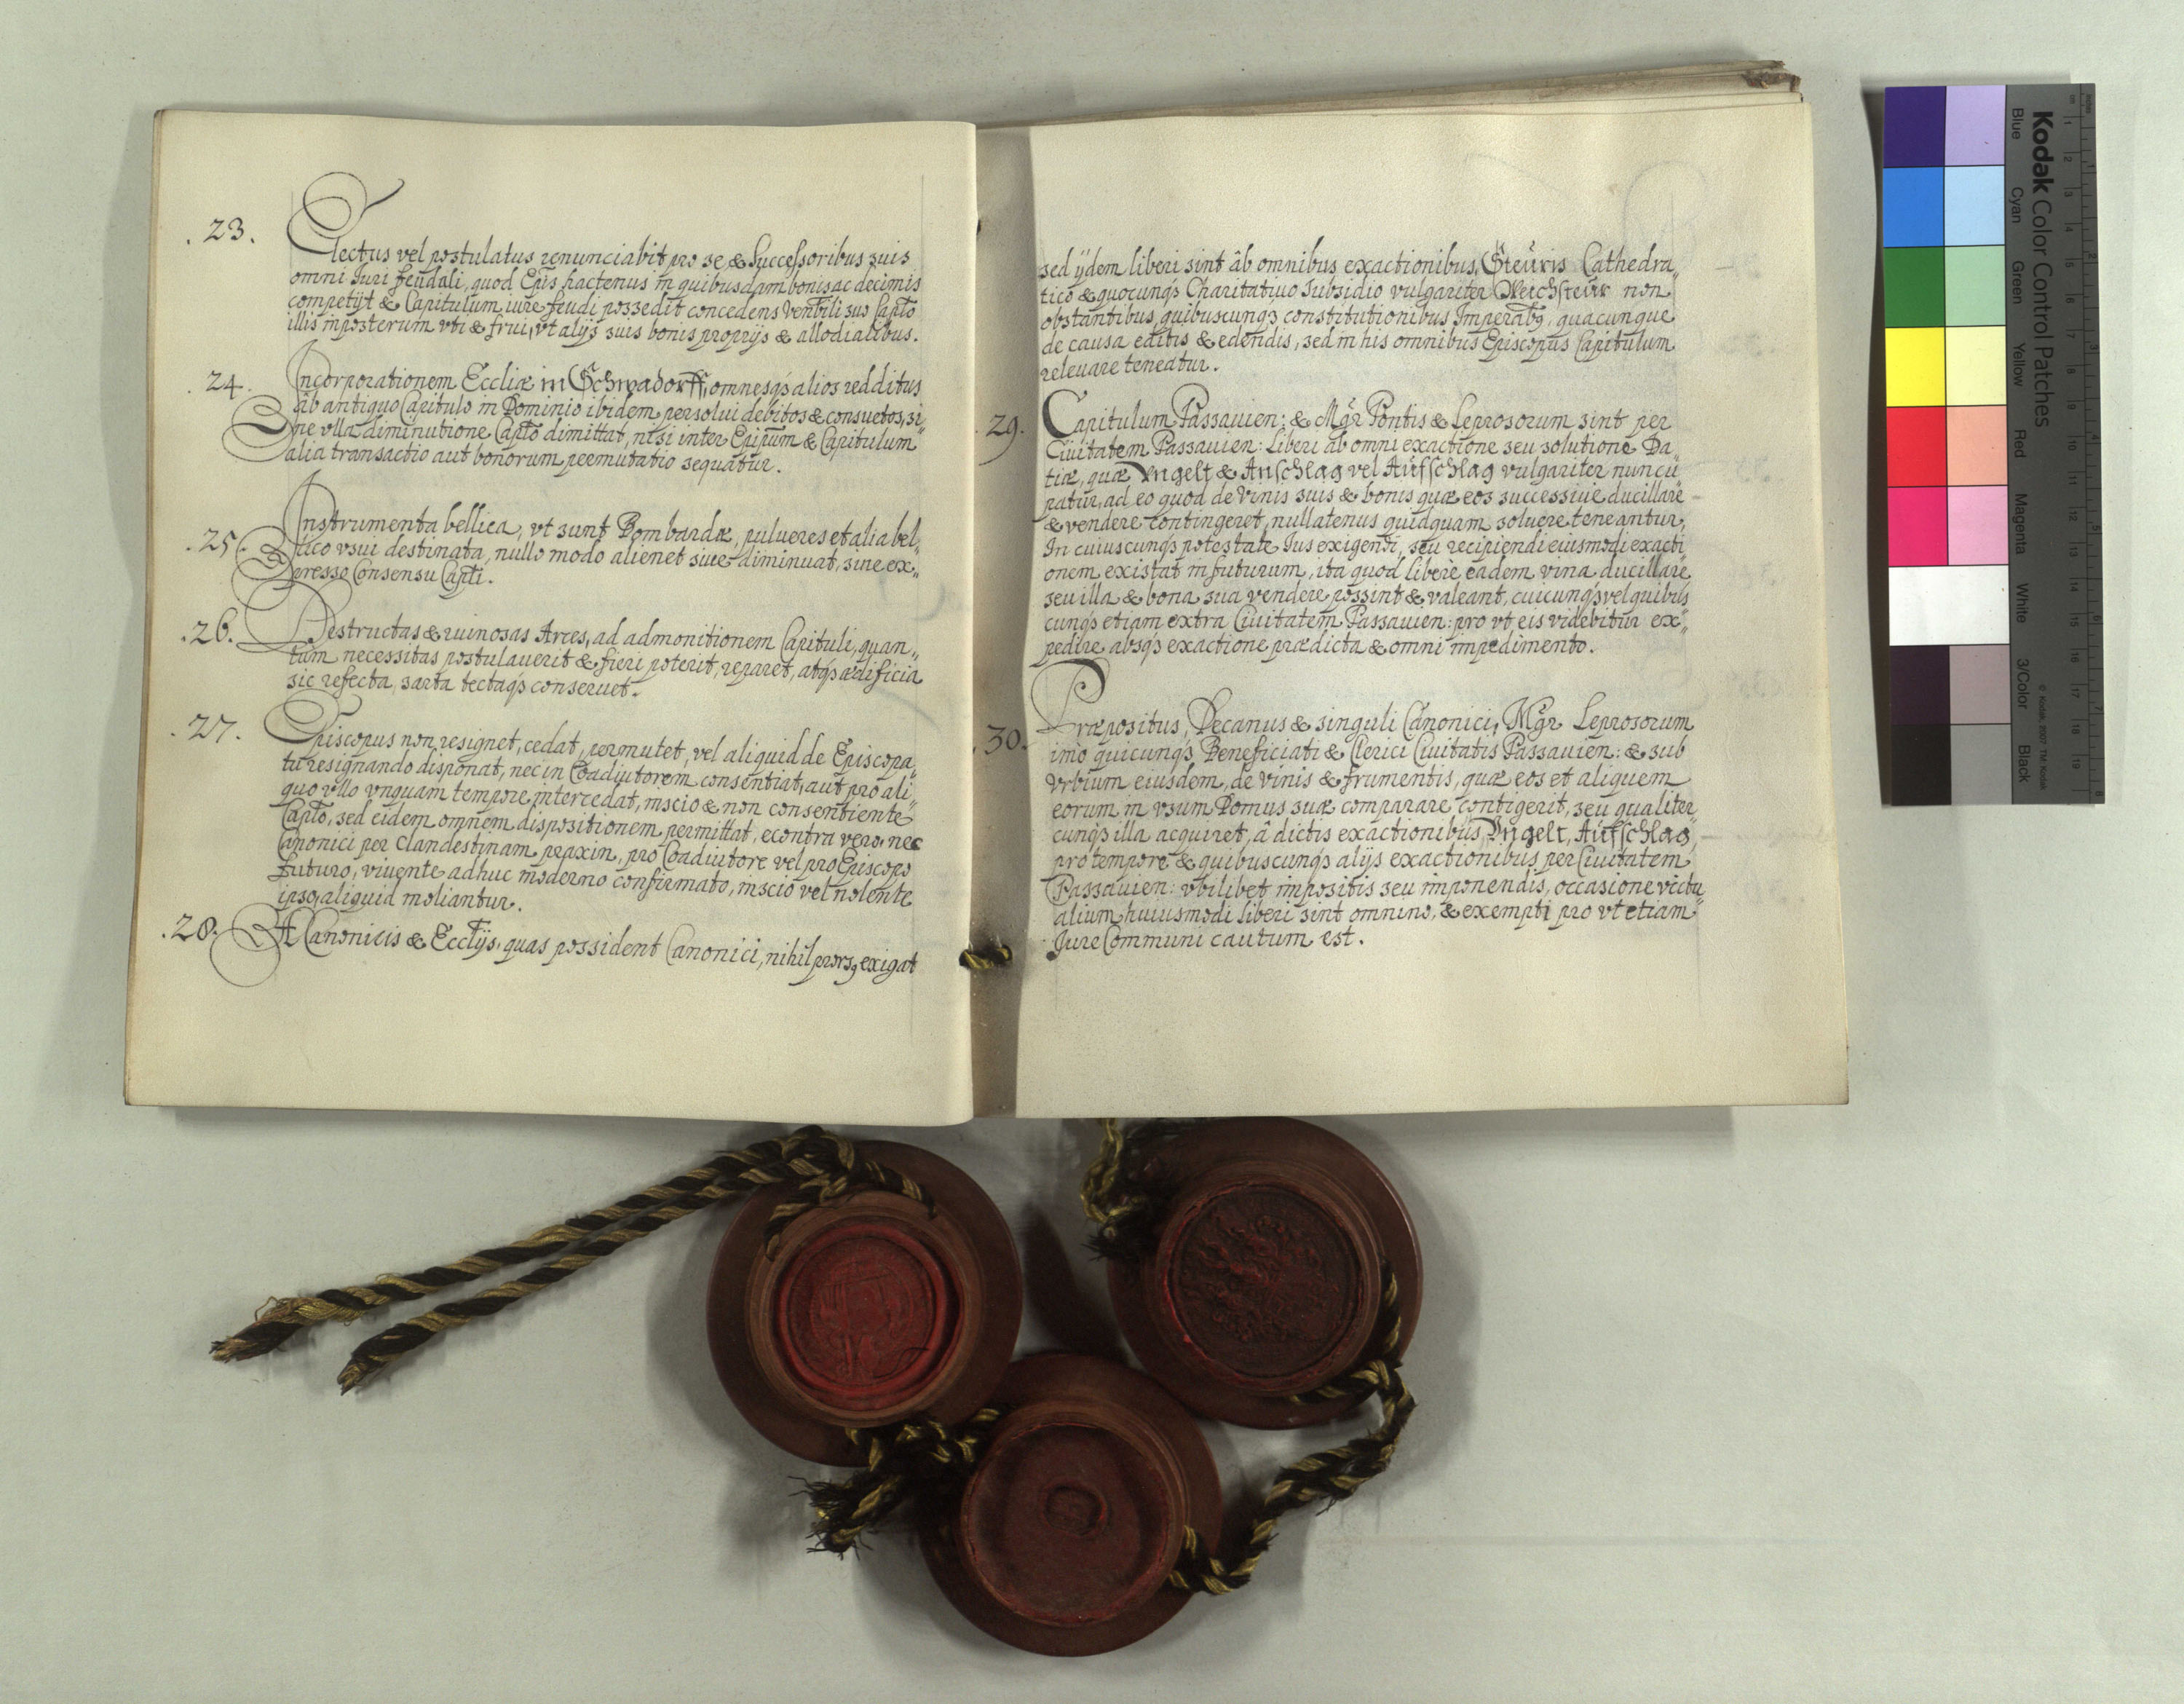 .23.
Electus vel postulatus renunciabit pro se, & Successoribus suis
omni Iuri feudali, quod Epis hactenus in quibusdam bonis ac decimis
competijt & Capitulum iure feudi possedit concedens Venbili suo Capto
illis inposterum vti & frui, vt alijs suis bonis proprijs & allodialibus.
24.
Incorporationem Eccliæ in Schwadorff, omnesq3 alios redditus
âb antiquo Capitulo in Dominio ibidem persolui debitos & consuetos, si„
ne vlla diminutione Capto dimittat, nisi inter Epipum & Capitulum
alia transactio aut bonorum permutatio sequatur.
.25.
Instrumenta bellica, vt sunt Bombardæ, pulueres et alia bel„
lico vsui destinata, nullo modo alienet siue diminuat, sine ex„
presso Consensu Capti.
.26.
Destructas & ruinosas Arces, ad admonitionem Capituli, quan„
tum necessitas postulauerit & fieri poterit, reparet, atq3 ædificia
sic refecta, sarta tectaq3 conseruet.
.27.
Episcopus non resignet, cedat, permutet, vel aliquid de Episcopa„
tu resignando disponat, nec in Coadiutorem consentiat, aut pro ali„
quo vllo vnquam tempore intercedat, inscio & non consentiente
Capto, sed eidem omnem dispositionem permittat, econtra vero, nec
Canonici per clandestinam praxin, pro Coadiutore vel pro Episcopo
futuro, viuente adhuc moderno confirmato, inscio vel nolente
ipso, aliquid moliantur.
.28.
A Canonicis & Ecclijs, quas possident Canonici, nihil prors9 exigat
sed ijdem liberi sint âb omnibus exactionibus, Steüris Cathedra„
tico & quocunq3 Charitatiuo Subsidio vulgariter Weichsteür non
obstantibus quibuscunq3 constitutionibus Imperatb9, quacunque
de causa editis & edendis, sed in his omnibus Episcopus Capitulum
releuare teneatur.
29.
Capitulum Passauien: & Mgr Pontis & Leprosorum sint per
Ciuitatem Passauien: Liberi ab omni exactione seu solutione Da„
tiæ, quæ Vngelt & Anschlag vel Aüfschlag vulgariter nuncu
patur, ad eo quod de Vinis suis & bonis quæ eos successiue ducillare
& vendere contingeret, nullatenus quidquam soluere teneantur,
In cuiuscunq3 potestate Ius exigendi, seu recipiendi eiusmodi exacti
onem existat in futurum, ita quod libere eadem vina ducillare
seu illa & bona sua vendere possint & valeant, cuicunq3 vel quibus
cunq3 etiam extra Ciuitatem Passauien: pro vt eis videbitur ex„
pedire, absq3 exactione prædicta & omni impedimento.
.30.
Præpositus, Decanus & singuli Canonici, Mgr Leprosorum
imò quicunq3 Beneficiati & Clerici Ciuitatis Passauien: & sub
Vrbium eiusdem, de vinis & frumentis, quæ eos et aliquem
eorum in vsum Domus suæ comparare contigerit, seu qualiter„
cunq3 illa acquiret, â dictis exactionibüs, Vngelt, Aüfschlag,
pro tempore & quibuscunq3 alijs exactionibus per Ciuitatem
Passauien: vbilibet impositis seu imponendis, occasione victu„
alium huiusmodi liberi sint omnino, & exempti pro vt etiam
Jure Communi cautum est.
Kodak Color Control Patches
Blue Cyan Green Yellow Red Magenta White 3/Color Black